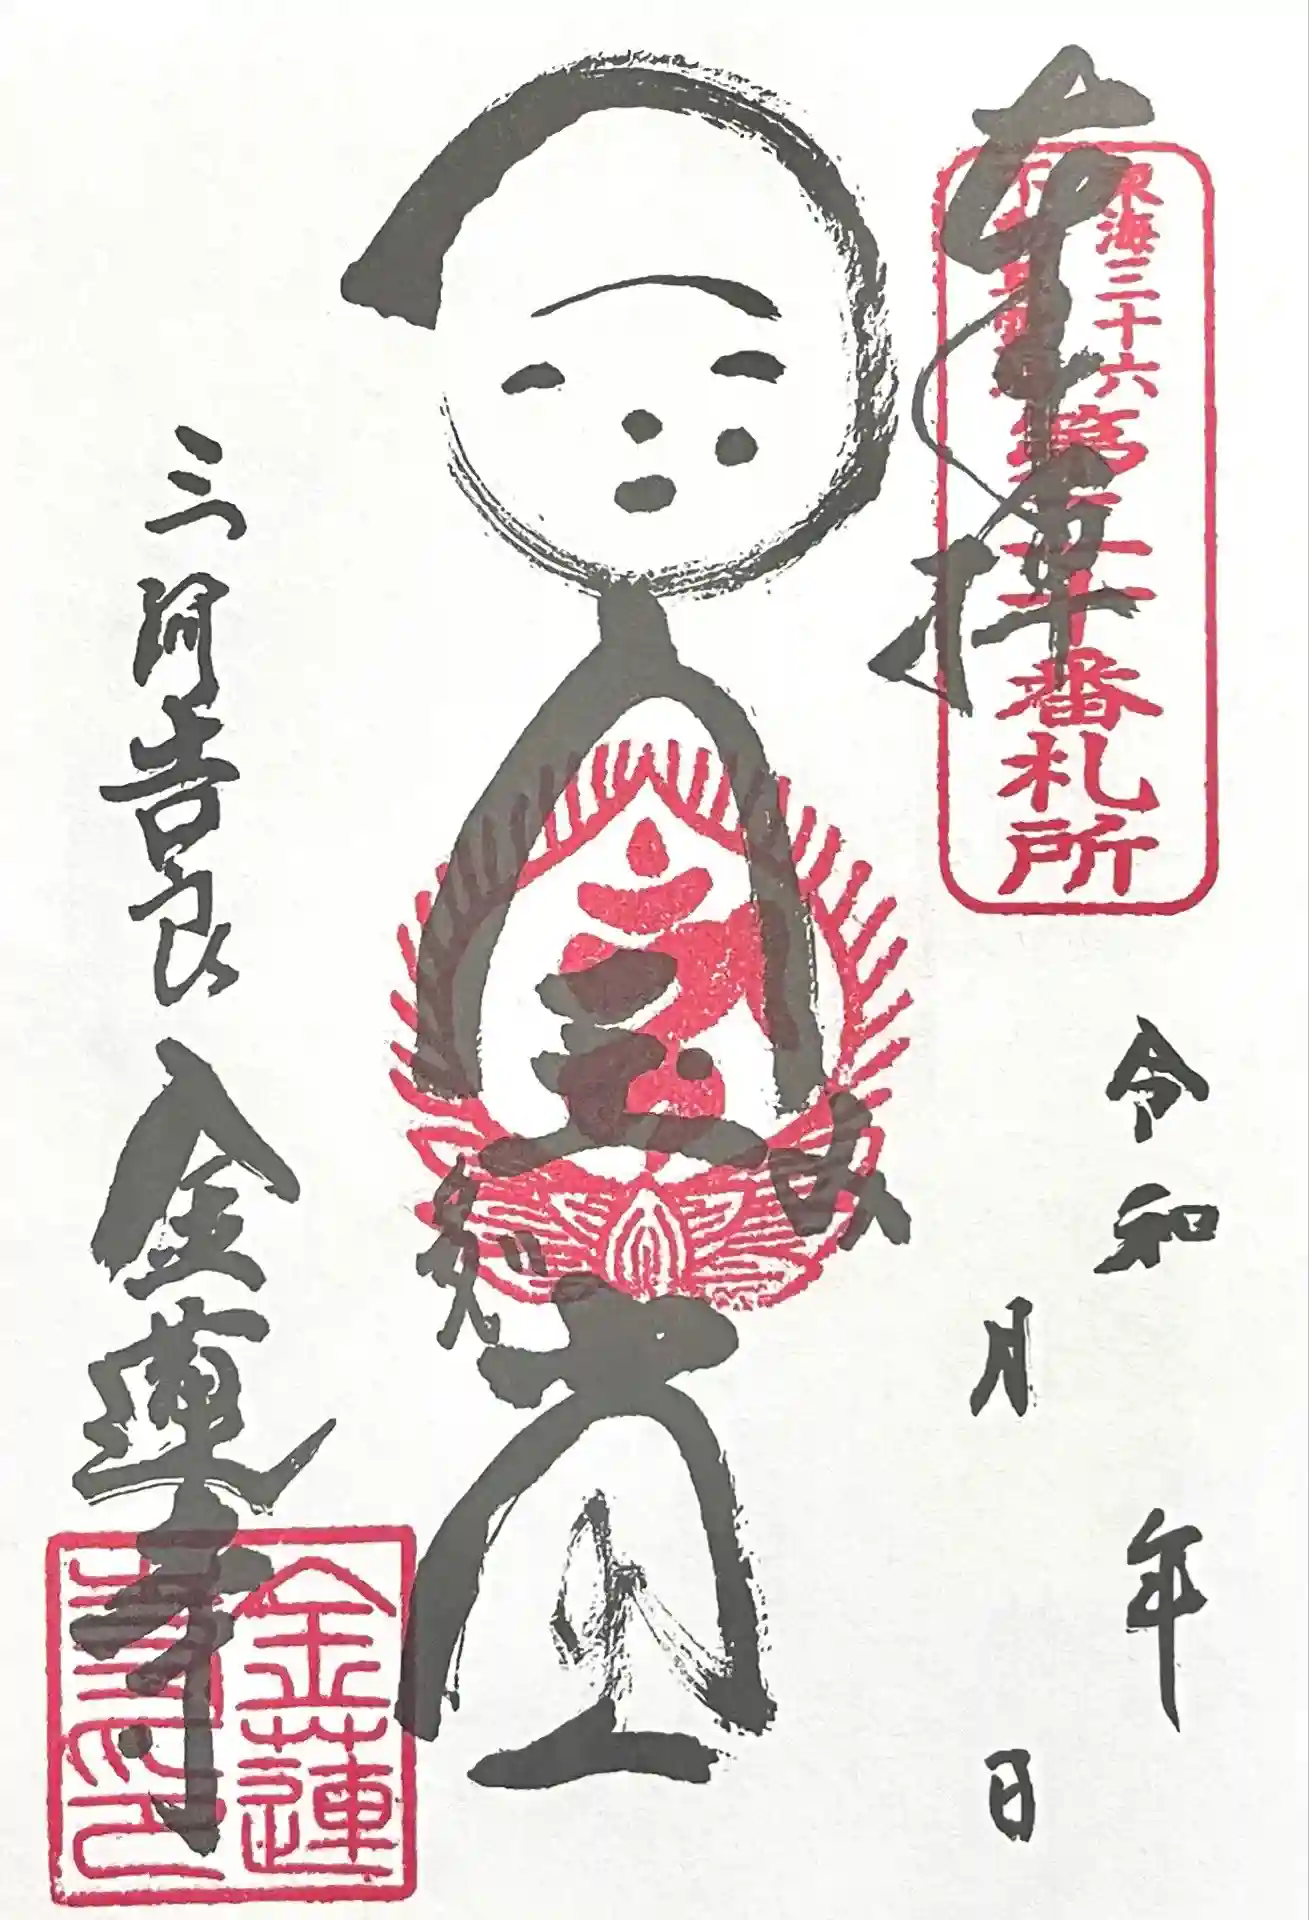 奉拝
東海三十六
不動尊霊場
第二十番札所
令和 年
月 日
三河吉良 金蓮寺
金蓮
寺印